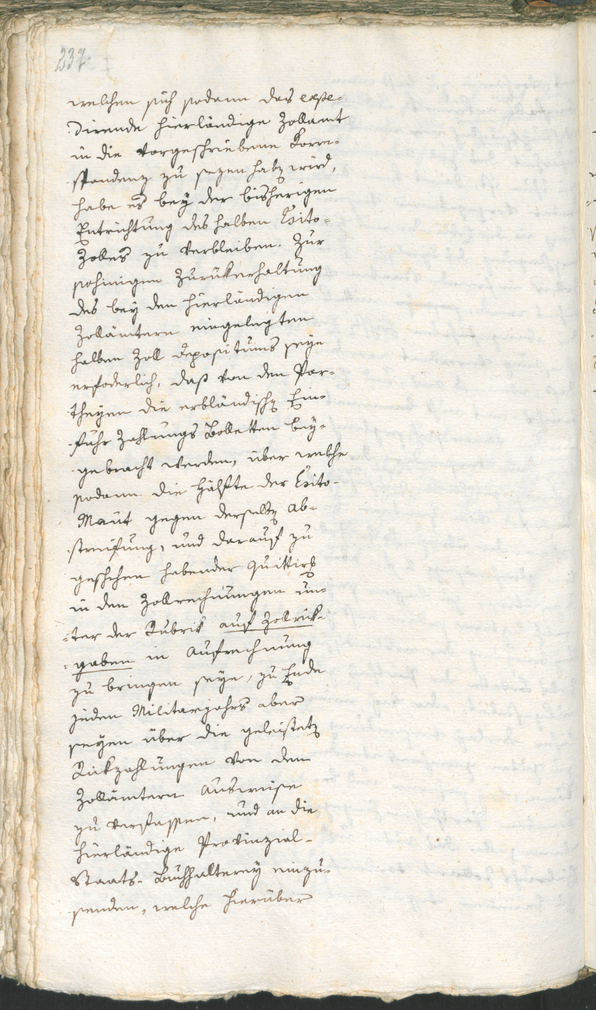 237.
welchen sich sodann das expe-
dirende hierländige Zollamt
in die vorgeschriebene Korre-
spondenz zu sezen hat, wird,
habe es bey der bisherigen
Entrichtung des halben Essito-
Zolles zu verbleiben. Zur
sohinigen Zurükerhaltung
des bey den hierländigen
Zollämtern eingelegten
halben Zoll Depositums seye
erfoderlich, daß von den Par-
theyen die erbländische Ein-
fuhr Zahlungs Bolletten bey-
gebracht werden, über welche
sodann die Hälfte der Essito-
Maut gegen derselben Ab-
streifung, und darauf zu
geschehen habender Quittirg
in den Zollrechnungen un-
ter der Rubrik auf Zollrük-
gaben in Aufrechnung
zu bringen seye, zu Ende
jeden Militarjahrs aber
seyen über die geleisteten
Rükzahlungen von den
Zollämtern Ausweise
zu verfassen, und an die
hierländige Provinzial-
Staats-Buchhalterey einzu-
senden, welche hierüber